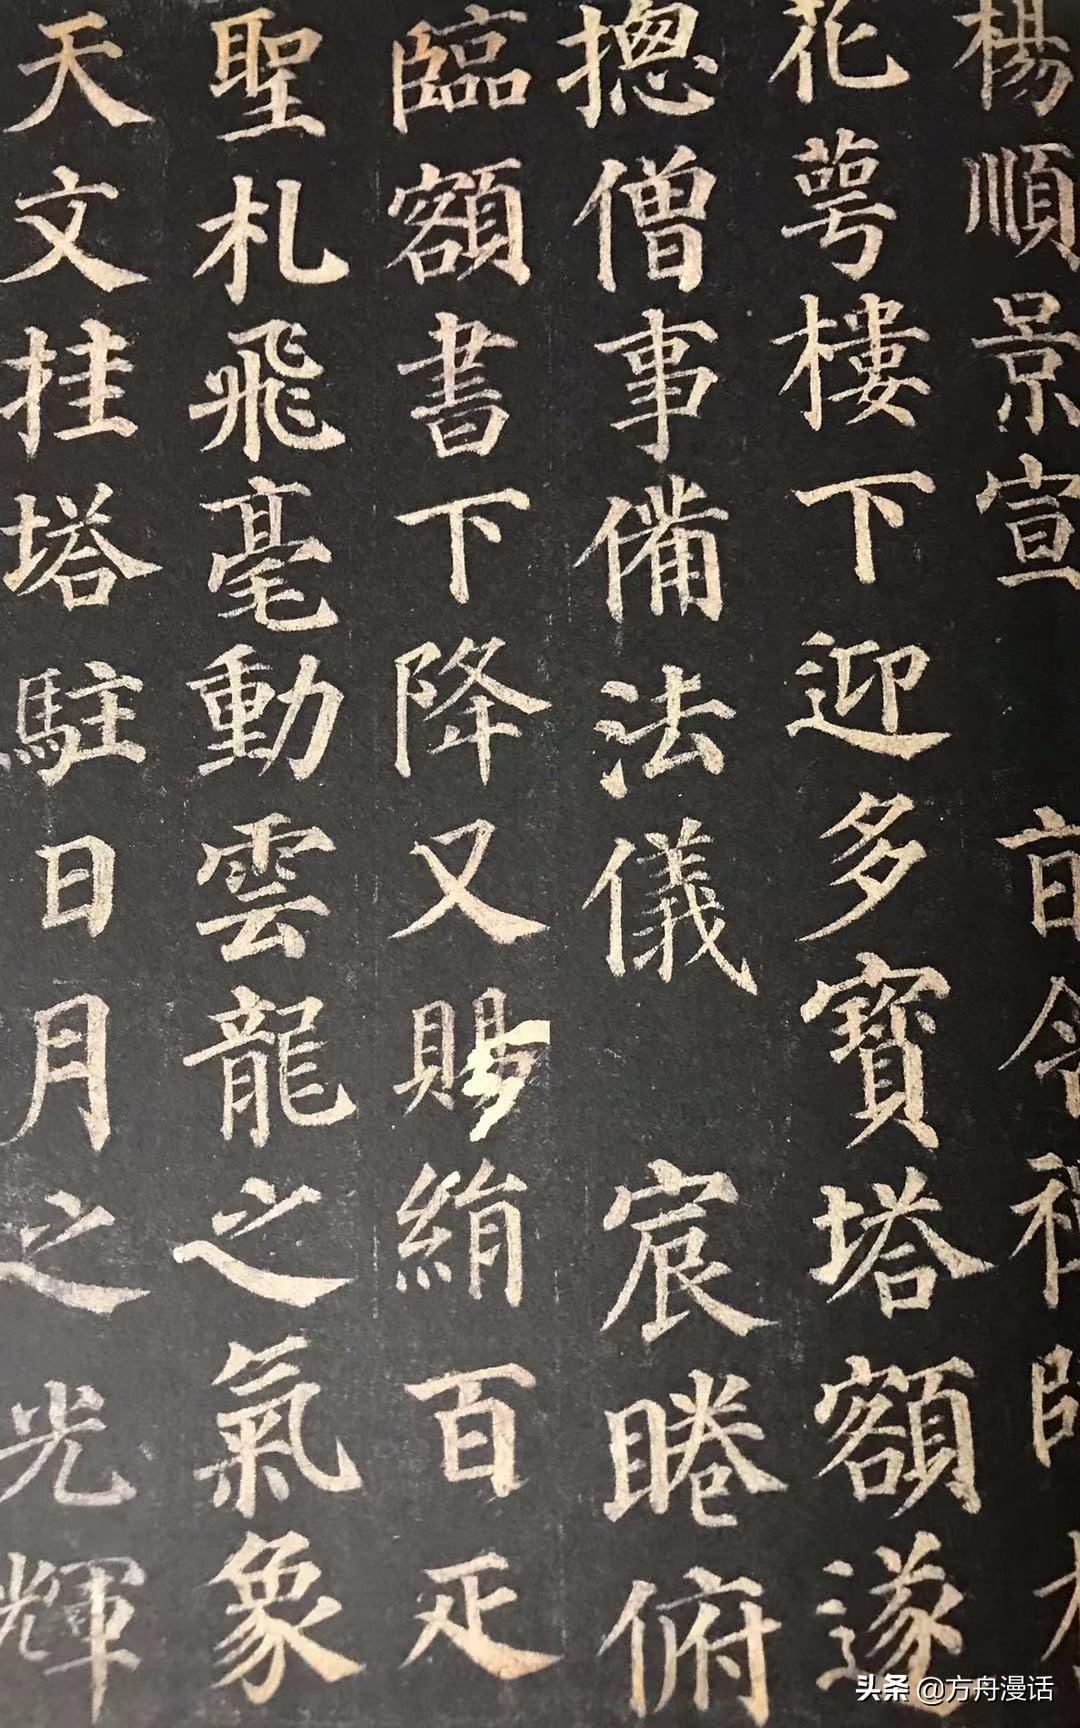 楊順景宣 旨令禪師於
花萼樓下迎多寶塔額遂
摠僧事備法儀 宸睠俯
臨額書下降又賜絹百疋
聖札飛毫動雲龍之氣象
天文挂塔駐日月之光輝
头条 @方舟漫话